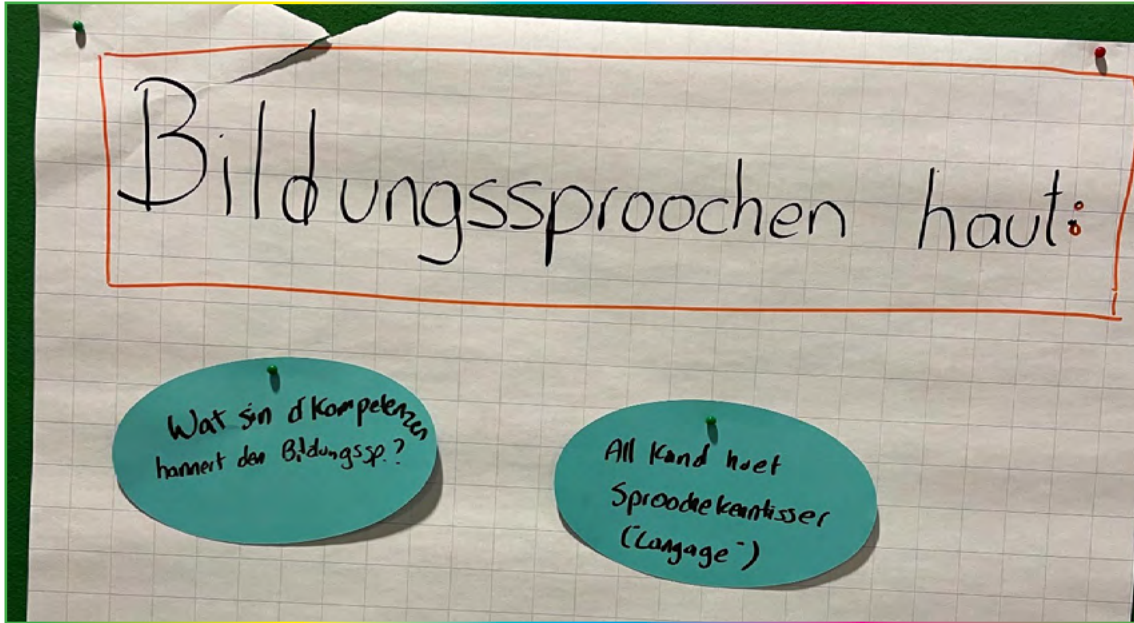 Bildungssproochen haut:
Wat sin d'Kompetenzen
hannert den Bildungssp.?
All Kand huet
Sproochekenntisser
("Langage")